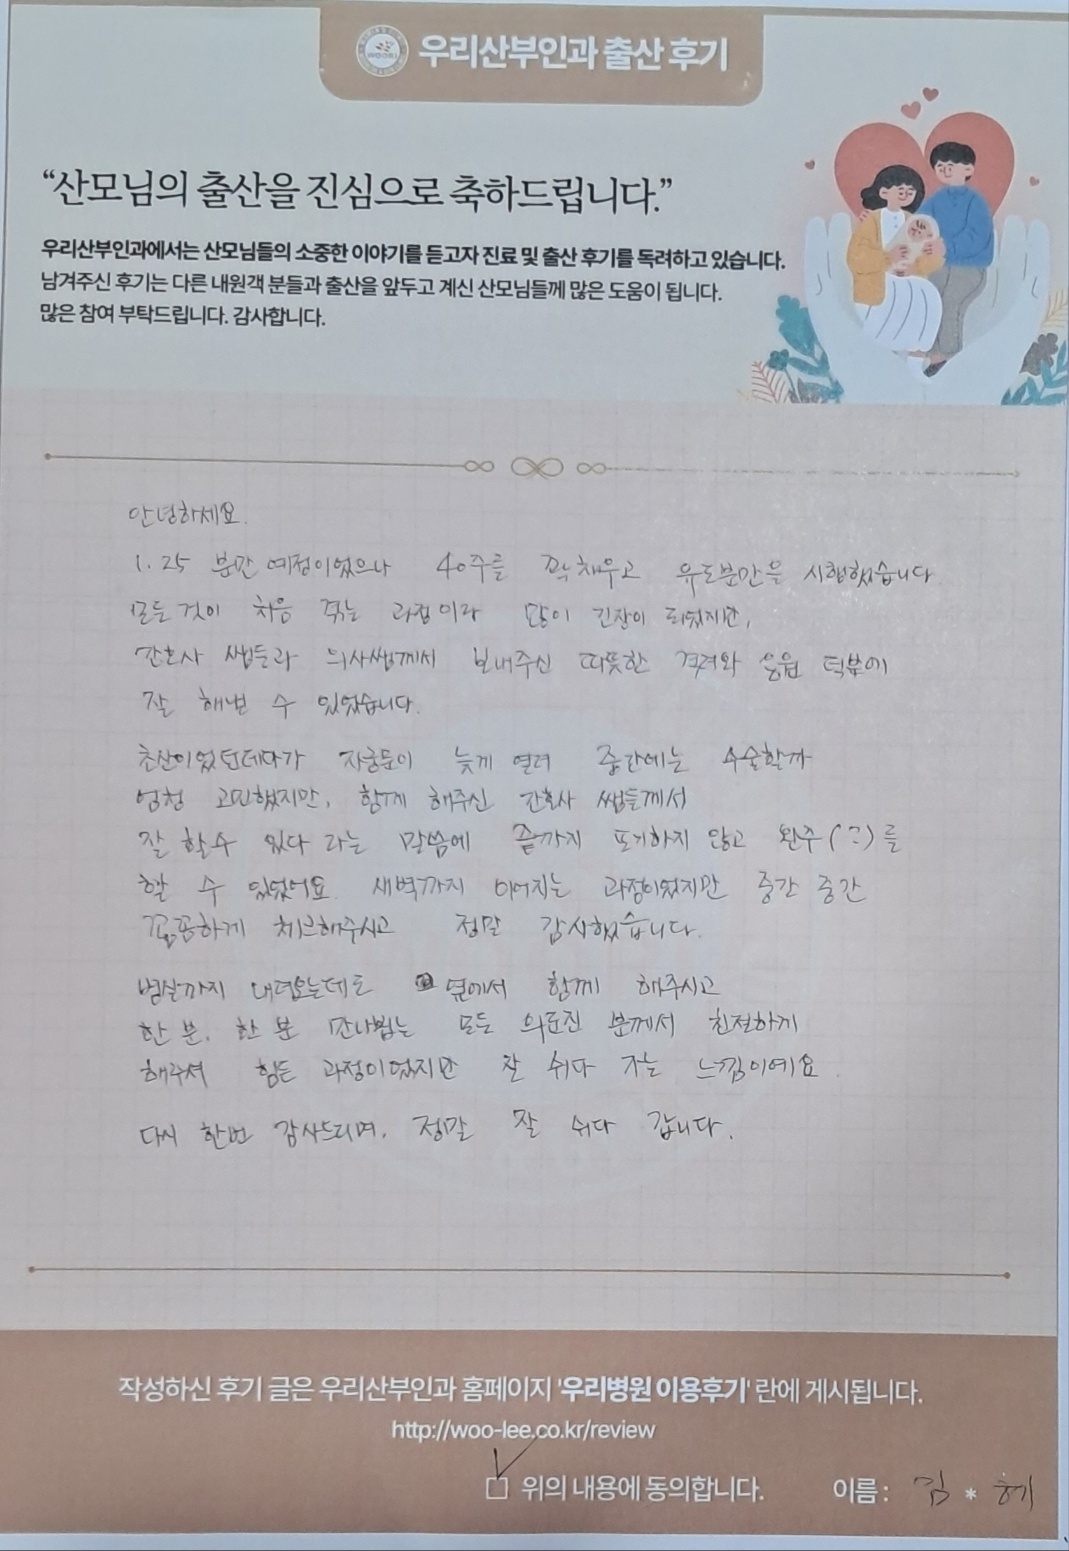 우리산부인과 출산 후기
“산모님의 출산을 진심으로 축하드립니다.”
우리산부인과에서는 산모님들의 소중한 이야기를 듣고자 진료 및 출산 후기를 독려하고 있습니다.
남겨주신 후기는 다른 내원객 분들과 출산을 앞두고 계신 산모님들께 많은 도움이 됩니다.
많은 참여 부탁드립니다. 감사합니다.
안녕하세요.
1. 25 분만 예정이었으나 40주를 꽉 채우고 유도분만을 시행했습니다
모든 것이 처음 겪는 과정이라 많이 긴장이 되었지만,
간호사 쌤들과 의사쌤께서 보내주신 따뜻한 격려와 응원 덕분에
잘 해낼 수 있었습니다.
초산이었던데다가 자궁문이 늦게 열려 중간에는 수술할까
엄청 고민했지만, 함께 해주신 간호사 쌤들께서
잘 할수 있다 라는 말씀에 끝까지 포기하지 않고 완주(?)를
할 수 있었어요. 새벽까지 이어지는 과정이었지만 중간 중간
꼼꼼하게 체크해주시고 정말 감사했습니다.
병실까지 내려오는데도 옆에서 함께 해주시고
한 분, 한 분 만나뵙는 모든 의료진 분께서 친절하게
해주셔 힘든 과정이었지만 잘 쉬다 가는 느낌이에요.
다시 한번 감사드리며, 정말 잘 쉬다 갑니다.
작성하신 후기 글은 우리산부인과 홈페이지 '우리병원 이용후기' 란에 게시됩니다.
http://woo-lee.co.kr/review
위의 내용에 동의합니다. 이름 : 김 * 혜